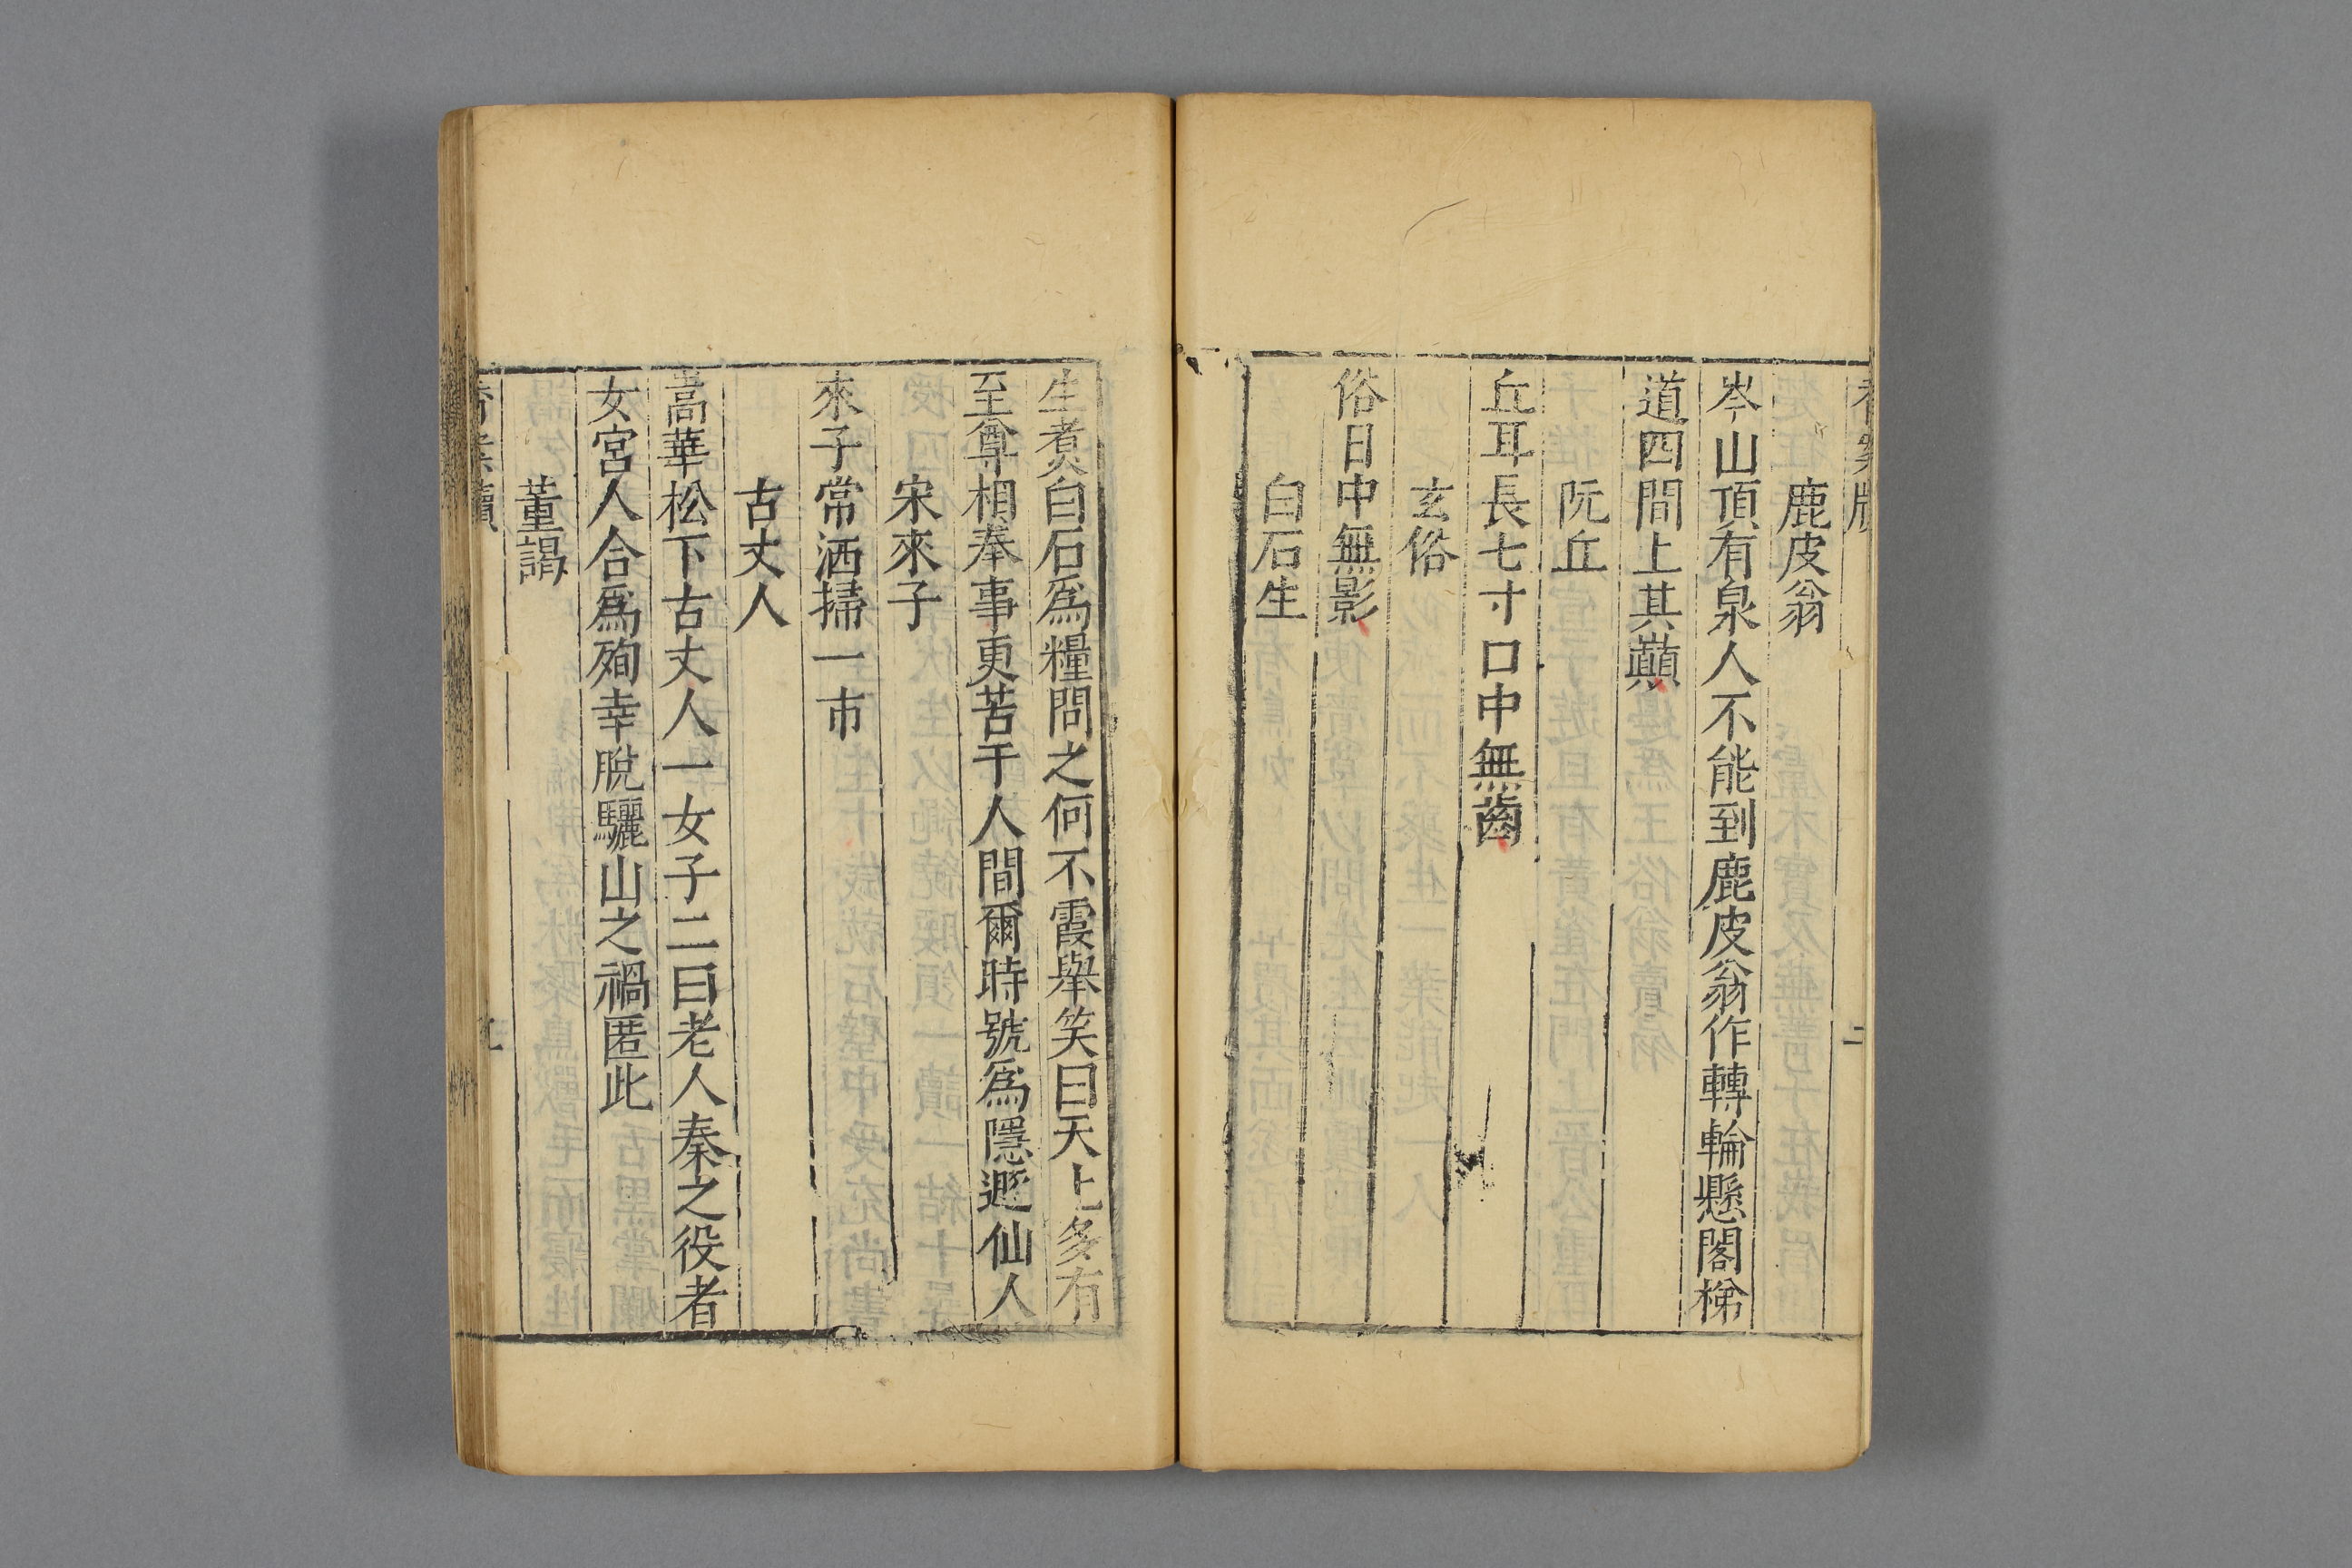 鹿皮翁
岑山頂有泉人不能到鹿皮翁作轉輪懸閣梯
道四間上其巔
阮丘
丘耳長七寸口中無齒
玄俗
俗日中無影
白石生
生煮白石爲糧問之何不霞舉笑曰天上多有
至尊相奉事更苦于人間爾時號爲隱遯仙人
宋來子
來子常洒掃一市
古丈人
嵩華松下古丈人一女子二曰老人秦之役者
女宮人合爲殉幸脫驪山之禍匿此
董謁